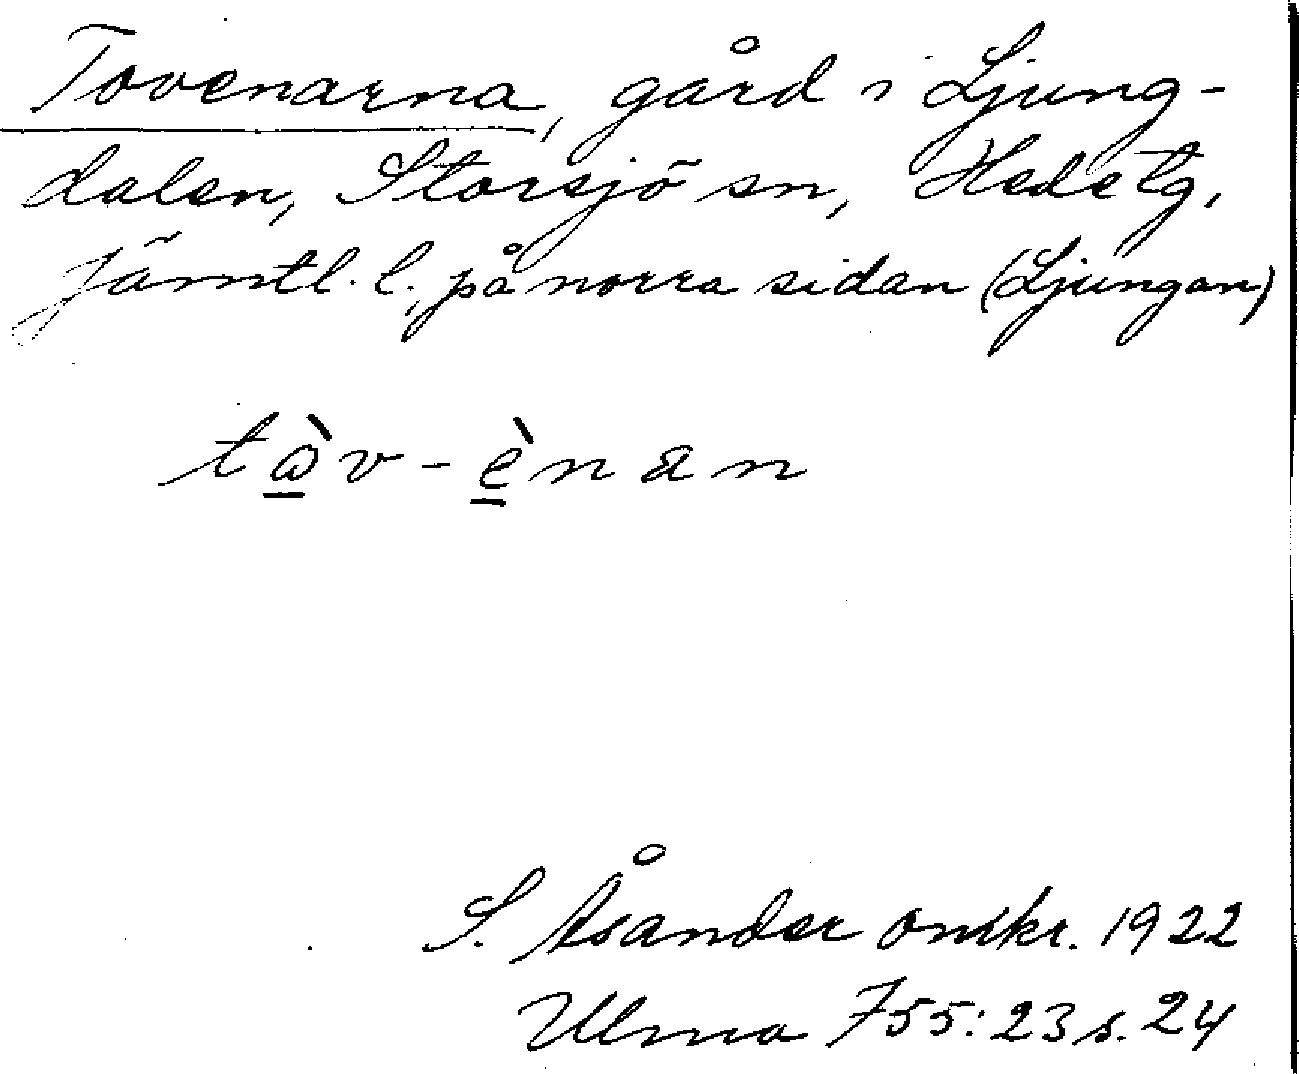 Tovenarna, gård i Ljung-
dalen, Storsjö sn, Hede tg,
Jämtl. l., på norra sidan (Ljungan)
tòv-ènan
S. Åsander omkr. 1922
Ulma 755:23 s. 24